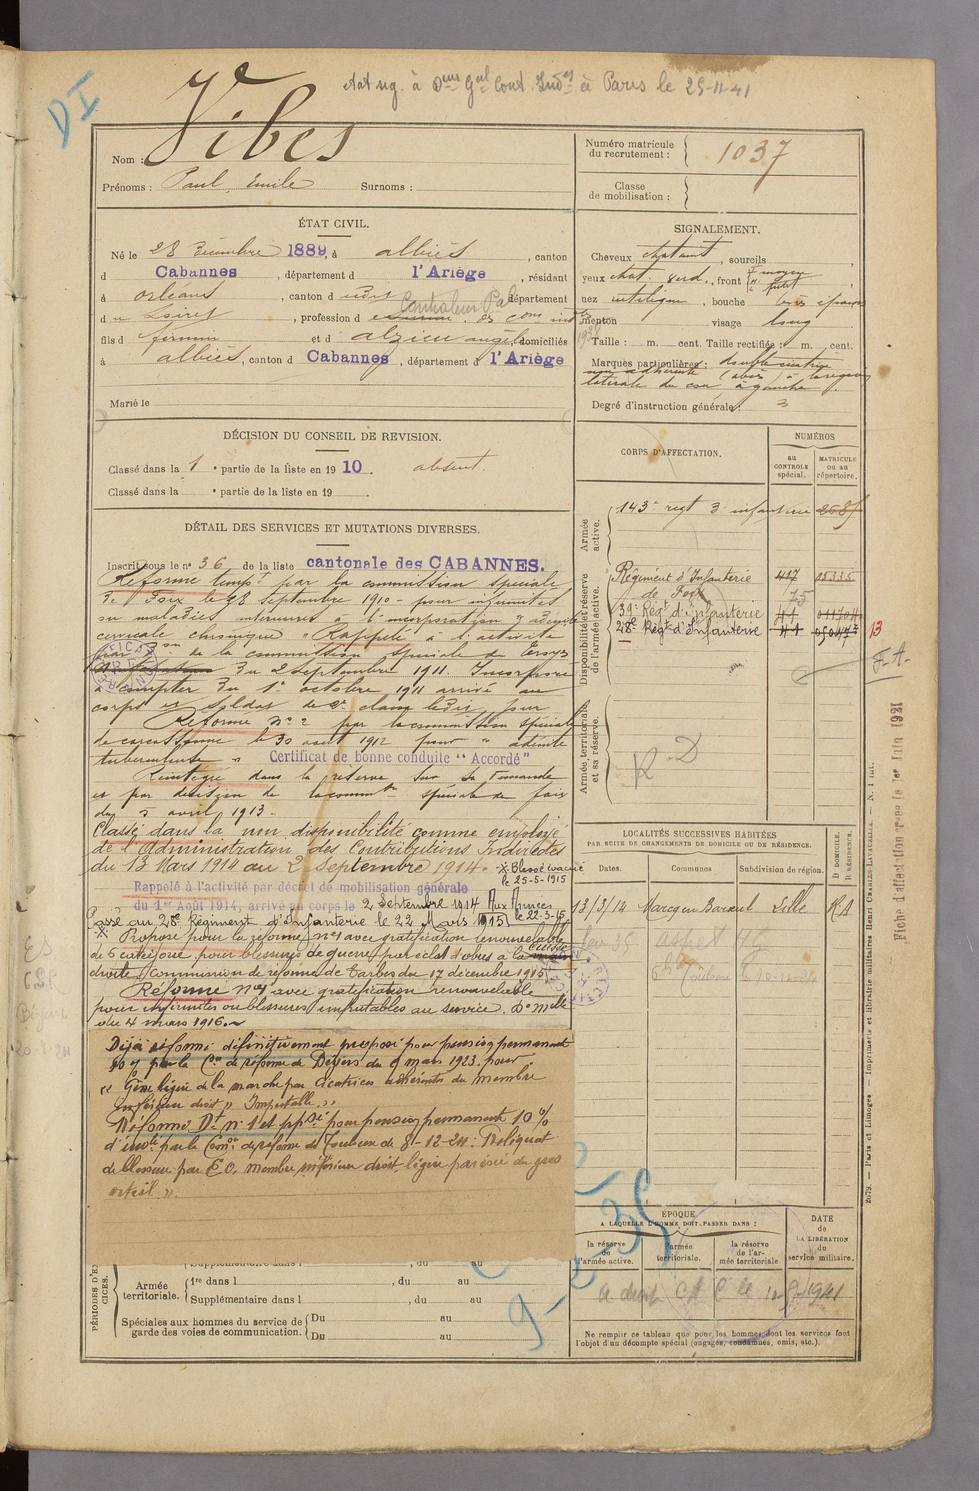 DI
à Paris le 25-11-41
Nom : Vibes
Prénoms : Paul, Emile Surnoms :
Numéro matricule du recrutement : 1037
Classe de mobilisation :
ÉTAT CIVIL.
Né le 28 Décembre 1889, à albiès, canton
d Cabannes, département d l'Ariège, résidant
à orléans, canton d dudit département
d u Loiret, profession d
fils d firmin et d alzieu angèle domiciliés
à albiès, canton d Cabannes, département d l'Ariège
Marié le
SIGNALEMENT.
Cheveux chatains, sourcils
yeux chat. verd., front moyen
nez rectiligne, bouche
menton visage long
Taille : m. cent. Taille rectifiée : m. cent.
Marques particulières : double cicatrice
non adhérente
latérale du cou à gauche
Degré d'instruction générale : 3
DÉCISION DU CONSEIL DE REVISION.
Classé dans la 1e partie de la liste en 1910. absent.
Classé dans la e partie de la liste en 19 .
DÉTAIL DES SERVICES ET MUTATIONS DIVERSES.
Inscrit sous le n° 36 de la liste cantonale des CABANNES.
Réformé tempt par la commission spéciale
de Foix le 28 septembre 1910 pour infirmités
ou maladies antérieures à l'incorporation, adénite
cervicale chronique. Rappelé à l'activité
de la commission spéciale de
du 2 septembre 1911. Incorporé
à compter du 1er octobre 1911 arrivé au
corps et soldat de 2e classe le dit jour
Réformé N° 2 par la commission spéciale
de carcassonne le 30 aout 1912 pour " adénite
tuberculeuse " Certificat de bonne conduite "Accordé"
Réintégré dans la réserve sur sa demande
et par décision de la common spéciale de foix
du 5 avril 1913.
Classé dans la non disponibilité comme employé
de l'Administration des Contributions Indirectes
du 13 Mars 1914 au 2 Septembre 1914. x Blessé évacué
le 25-5-1915
Rappelé à l'activité par décret de mobilisation générale
du 1er Août 1914, arrivé au corps le 2 Septembre 1914 Aux Armées
le 22-3-15
Passé au 28e Régiment d'Infanterie le 22 Mars 1915
x Proposé pour la réforme n°1 avec gratification renouvelable
de 6 catégorie pour blessures de guerre par éclat d'obus à la cuisse
droite (Commission de réforme de Tarbes du 17 décembre 1915)
Réformé n°1 avec gratification renouvelable
pour infirmités ou blessures imputables au service, Don Mlle
du 4 mars 1916.
Déjà réformé définitivement proposé pour pension permanent
10 % par la Con de réforme de Béziers du 9 mars 1923 pour
" Gêne légère de la marche par cicatrices adhérentes du membre
inférieur droit " Imputable. "
Réformé Dt n° 1 et ppsé pour pension permanent 10 %
d'invté par la Comon de réforme de Toulouse du 8-12-24 : Reliquat
de blessure par E.O. membre inférieur droit légère parésie du gros
orteil ".
CORPS D'AFFECTATION.
NUMÉROS
au CONTROLE spécial.
MATRICULE ou au répertoire.
Armée active.
143e regt d'infanterie
Disponibilité et réserve de l'armée active.
Régiment d'Infanterie 417 05335
de Foix
39e Régt d'infanterie
28e Régt d'Infanterie
13
F.A.
Armée territoriale et sa réserve.
R.D
LOCALITÉS SUCCESSIVES HABITÉES
PAR SUITE DE CHANGEMENTS DE DOMICILE OU DE RÉSIDENCE.
Dates. Communes Subdivision de région. D DOMICILE. R RÉSIDENCE.
13/3/14 Marcq en Baroeul Lille R A
Toulouse
ÉPOQUE
A LAQUELLE L'HOMME DOIT PASSER DANS :
la réserve de l'armée active.
l'armée territoriale.
la réserve de l'armée territoriale
DATE de LA LIBÉRATION du service militaire.
a droit C A C le 1941
Ne remplir ce tableau que pour les hommes dont les services font
l'objet d'un décompte spécial (engagés, condamnés, omis, etc.).
PÉRIODES D'EX
CICES.
Supplémentaire dans l , du au
Armée territoriale.
1re dans l , du au
Supplémentaire dans l , du au
Spéciaux aux hommes du service de garde des voies de communication.
Du au
Du au
2079. — Paris et Limoges — Imprimerie et librairie militaires Henri CHARLES-LAVAUZELLE. — N. 1 int.
Fiche d'affectation le 1er Juin 1921
9-2-35